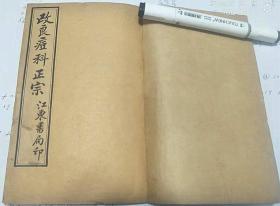 改良痧科正宗
江東書局印